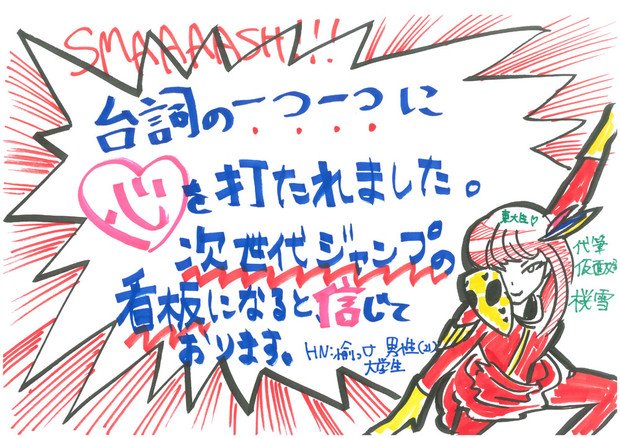 SMAAAAASH!!!
台詞の一つ一つに
心を打たれました。
次世代ジャンプの
看板になると、信じて
おります。
HN:愉っけ 男性(21)
大学生
東大生♡
代筆
仮面女子
桜雪